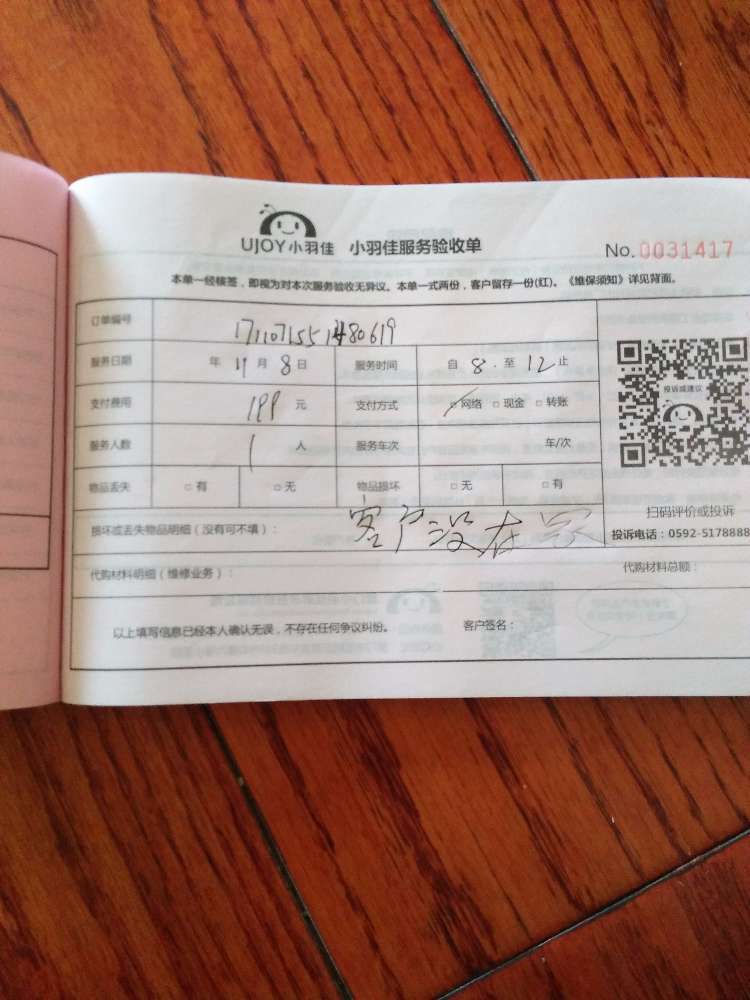 UJOY小羽佳 小羽佳服务验收单 No.0031417
本单一经核签，即视为对本次服务验收无异议。本单一式两份，客户留存一份(红)。《维保须知》详见背面。
订单编号
服务日期 年 11 月 8 日 服务时间 自 8 . 至 12 止
支付费用 199 元 支付方式 □网络 □现金 □转账
服务人数 1 人 服务车次 车/次
物品丢失 □有 □无 物品损坏 □无 □有
投诉或建议
扫码评价或投诉
投诉电话：0592-5178888
损坏或丢失物品明细（没有可不填）： 客户没在家
代购材料明细（维修业务）： 代购材料总额：
以上填写信息已经本人确认无误，不存在任何争议纠纷。 客户签名：